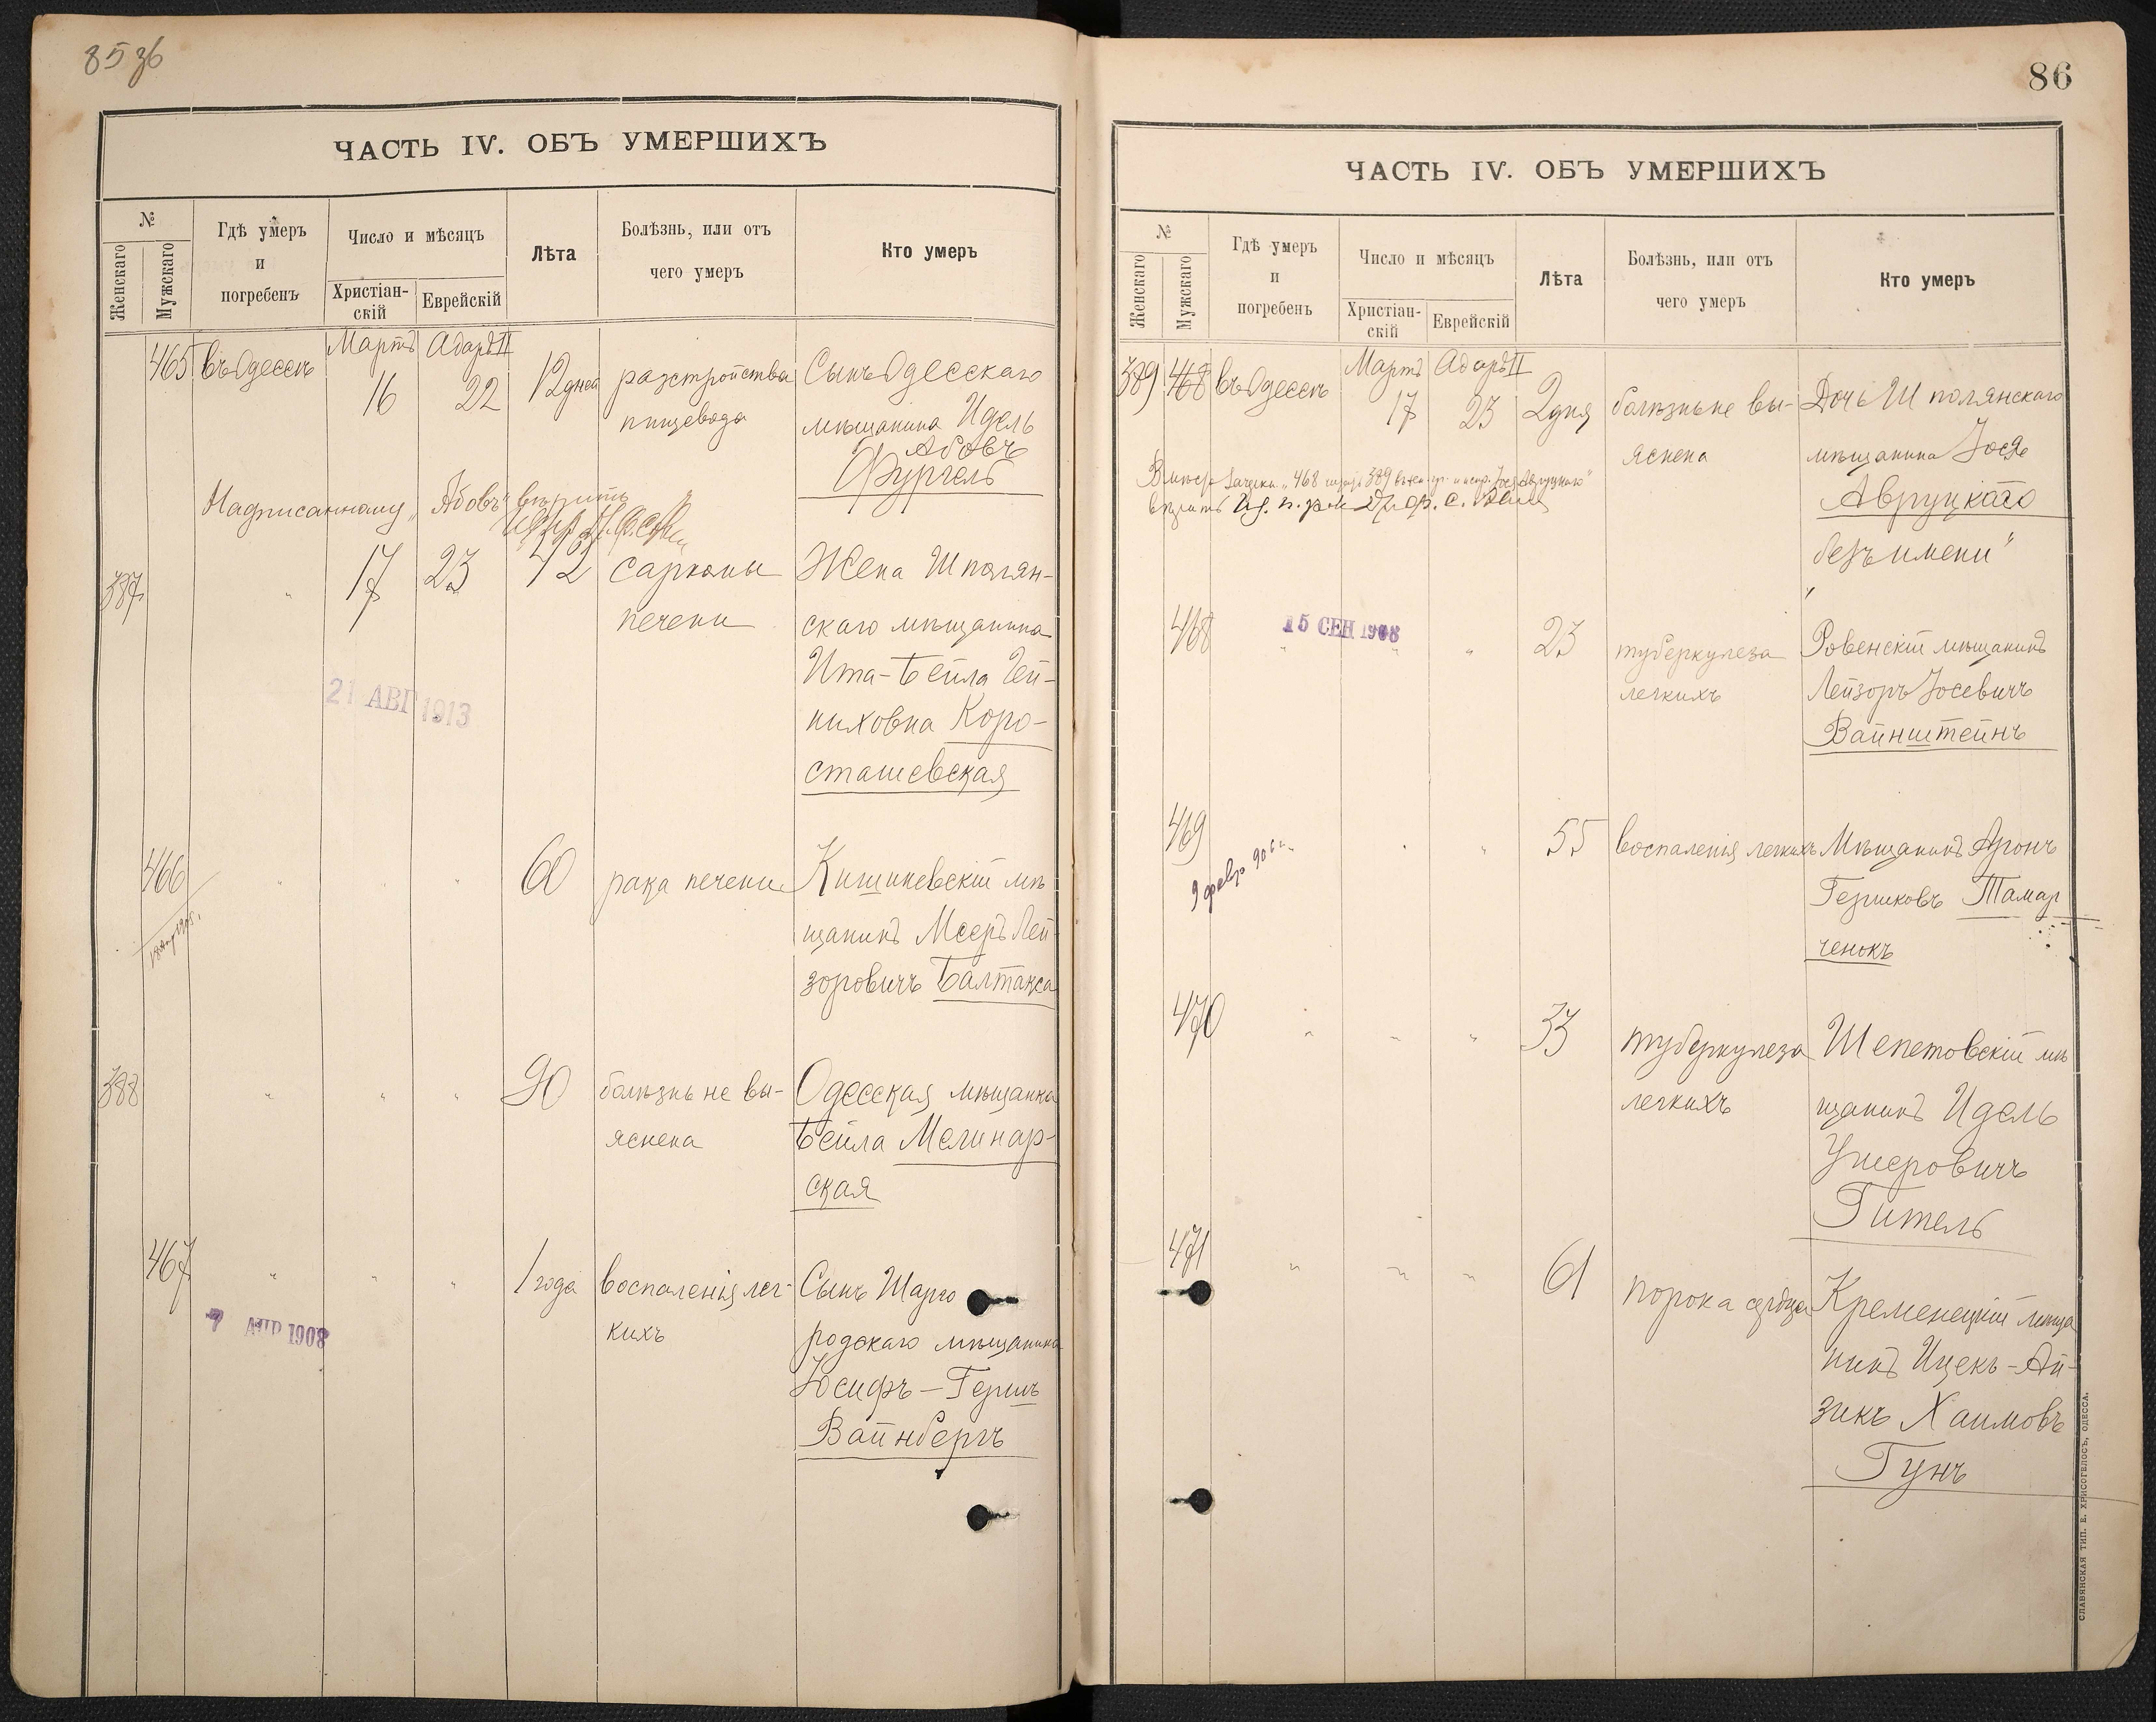 85 об
ЧАСТЬ IV. ОБЪ УМЕРШИХЪ
№
Женскаго
Мужскаго
Гдѣ умеръ
и
погребенъ
Число и мѣсяцъ
Христіан-
скій
Еврейскій
Лѣта
Болѣзнь, или отъ
чего умеръ
Кто умеръ
465 въ Одессѣ Мартъ 16 Адаръ II 22 12 дней разстройства Сынъ Одесскаго
пищевода мѣщанина Идель
Абовъ
Фургель
Надписанному „Абовъ" вѣрить
387 " 17 23 42 саркомы Жена Шполян-
печени скаго мѣщанина
Ита-Бейла Гей-
ниховна Коро-
сташевская
21 АВГ 1913
466 " " " 60 рака печени Кишиневскій мѣ
щанинъ Мееръ Лей-
зоровичъ Балтакса
388 " " " 90 болѣзнь не вы- Одесская мѣщанка
яснена Бейла Мелинар-
ская
467 " " " 1 года воспаленія лег- Сынъ Шарго
кихъ родскаго мѣщанина
Іосифъ-Гершъ
Вайнбергъ
7 АПР 1908
86
ЧАСТЬ IV. ОБЪ УМЕРШИХЪ
№
Женскаго
Мужскаго
Гдѣ умеръ
и
погребенъ
Число и мѣсяцъ
Христіан-
скій
Еврейскій
Лѣта
Болѣзнь, или отъ
чего умеръ
Кто умеръ
389 468 въ Одессѣ Мартъ 17 Адаръ II 23 2 дня болѣзнь не вы- Дочь Шполянскаго
яснена мѣщанина Іося
Авруцкаго
„безъ имени"
468 " " " 23 туберкулеза Ровенскій мѣщанинъ
легкихъ Лейзоръ Іосевичъ
Вайнштейнъ
15 СЕН 1908
469 " " 55 воспаленія легкихъ Мѣщанинъ Аронъ
Гершковъ Тамар
ченокъ
9 февр 906 г.
470 " " " 33 туберкулеза Шепетовскій мѣ
легкихъ щанинъ Идель
Ушеровичъ
Гитель
471 " " " 61 порока сердца Кременецкій мѣща
нинъ Ицекъ-Ай-
зикъ Хаимовъ
Гунъ
СЛАВЯНСКАЯ ТИП. Е. ХРИСОГЕЛОСЪ, ОДЕССА.